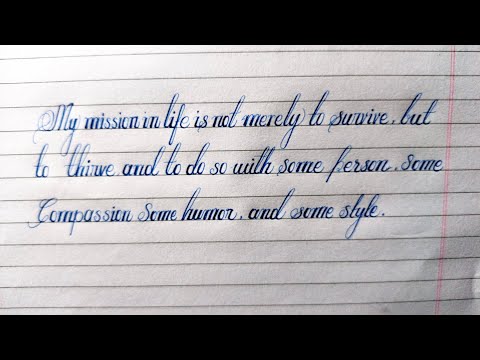 My mission in life is not merely to survive, but
to thirve and to do so with some person. Some
Compassion Some humor, and some style.